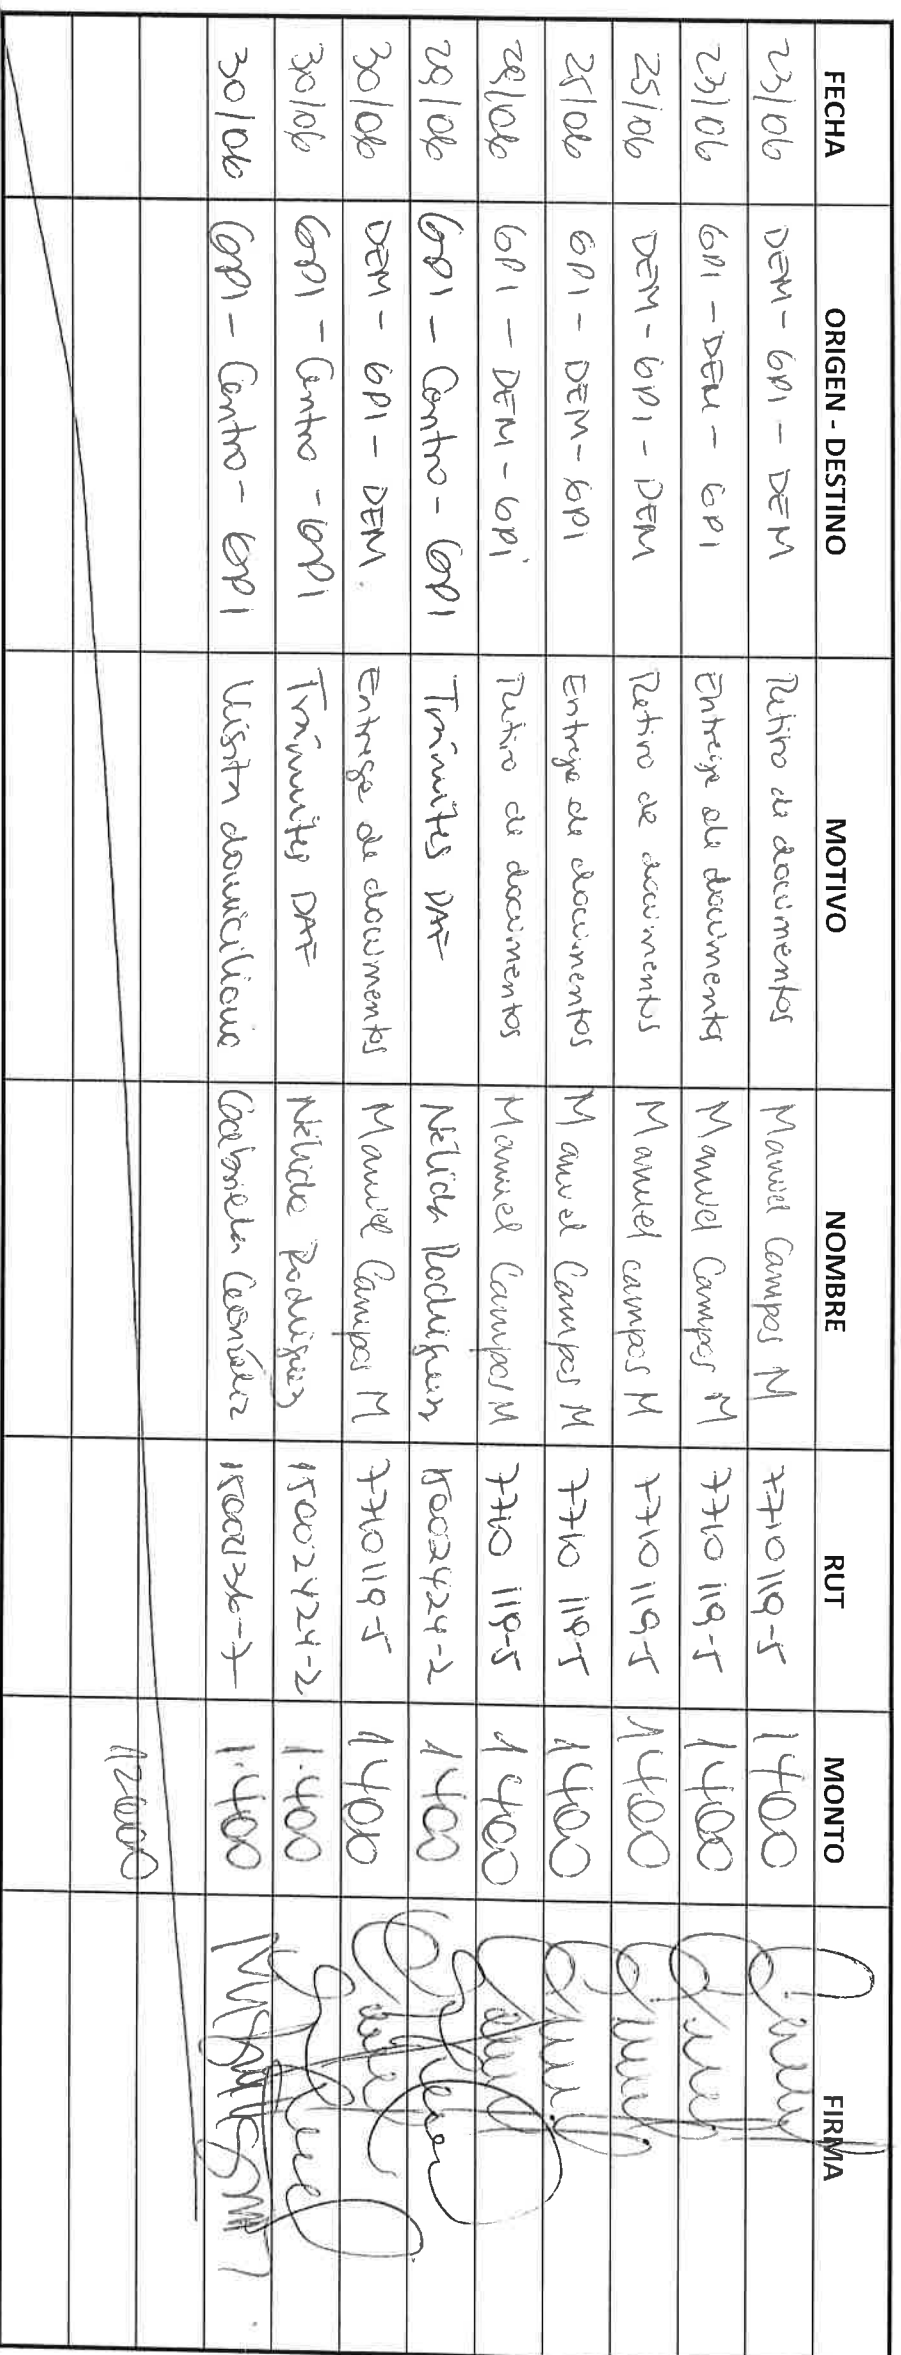 FECHA ORIGEN - DESTINO MOTIVO NOMBRE RUT MONTO FIRMA
23/06 DEM - GPI - DEM Retiro de documentos Manuel Campos M 7710119-5 1400
23/06 GPI - DEM - GPI Entrega de documentos Manuel Campos M 7710119-5 1400
25/06 DEM - GPI - DEM Retiro de documentos Manuel campos M 7710119-5 1400
25/06 GPI - DEM - GPI Entrega de documentos Manuel Campos M 7710119-5 1400
29/06 GPI - DEM - GPI Retiro de documentos Manuel Campos M 7710119-5 1400
29/06 GPI - Centro - GPI Trámites DAF Nélida Rodriguez 15002424-2 1.400
30/06 DEM - GPI - DEM. Entrega de documentos Manuel Campos M 7710119-5 1400
30/06 GPI - Centro - GPI Trámites DAF Nélida Rodriguez 15002424-2 1.400
30/06 GPI - Centro - GPI Visita domiciliaria Gabriela González 1.400
12600